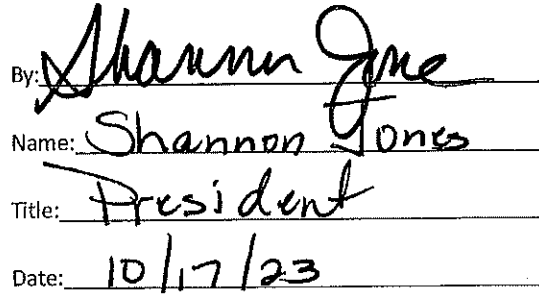 By: Shannon Jones
Name: Shannon Jones
Title: President
Date: 10/17/23